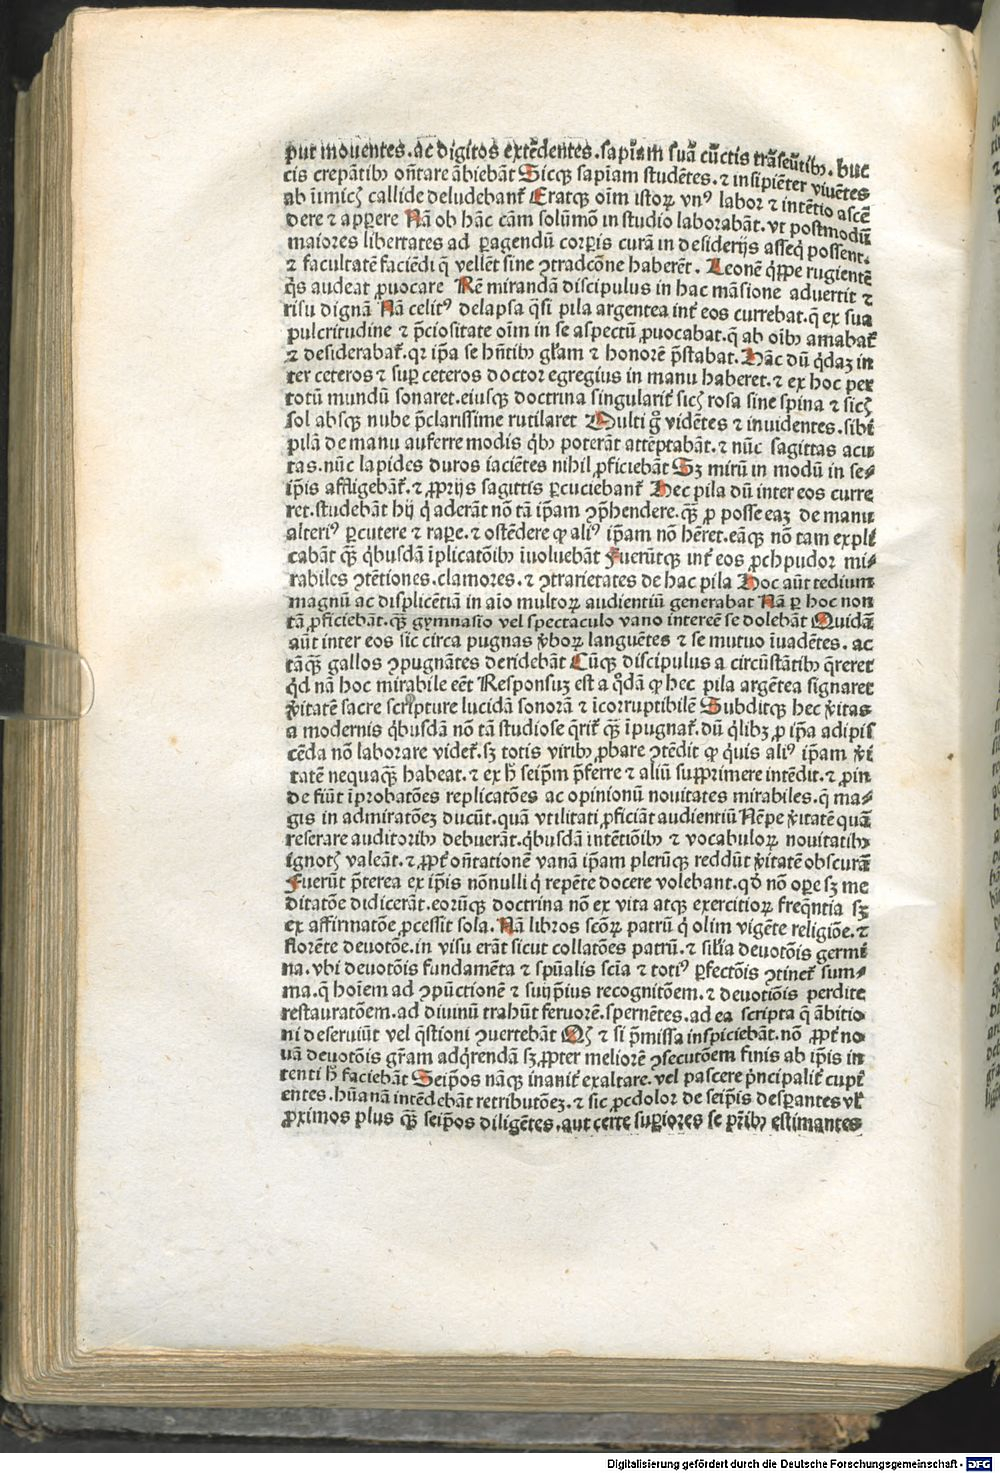 put mouentes.ac digitos extēdentes.sapīam suā cūctis trāseūtibꝫ.buc
cis crepātibꝫ oñtare ābiebāt Sicqꝫ sapīam studētes.⁊ insipiēter viuētes
ab īimicꝭ callide deludebant᷑ Eratqꝫ oīm istoꝝ vnꝰ labor ⁊ intētio ascē
dere ⁊ apꝑere Nā ob hāc cām solūmō in studio laborabāt.vt postmodū
maiores libertates ad ꝑagendū corꝑis curā in desiderijs asseq̄ possent.
⁊ facultatē faciēdi q̄ vellēt sine ↄtradcōne haberēt. Leonē q̇ppe rugientē
q̇s audeat ꝓuocare Rē mirandā discipulus in hac māsione aduertit ⁊
risu dignā Nā celitꝰ delapsa q̄si pila argentea int᷑ eos currebat.q̄ ex sua
pulcritudine ⁊ p̄ciositate oīm in se aspectū ꝓuocabat.q̄ ab oībꝫ amabat᷑
⁊ desiderabat᷑.qꝛ ip̄a se hñtibꝫ gr̄am ⁊ honorē p̄stabat.Hāc dū q̇daꝫ in
ter ceteros ⁊ suꝑ ceteros doctor egregius in manu haberet.⁊ ex hoc per
totū mundū sonaret.eiusqꝫ doctrina singularit᷑ sicꝭ rosa sine spina ⁊ sicꝭ
sol absqꝫ nube p̄clarissime rutilaret Multi g̊ vidētes ⁊ inuidentes.sibi
pilā de manu auferre modis q̇bꝫ poterāt attēptabāt.⁊ nūc sagittas acu
tas.nūc lapides duros iaciētes nihil ꝓficiebāt Sꝫ mirū in modū in se⸗
ip̄is affligebāt᷑.⁊ ꝓprijs sagittis ꝑcuciebant᷑ Hec pila dū inter eos curre
ret.studebāt hij q̇ aderāt nō tā ip̄am ↄp̄hendere.qꝫ̄ ꝓ posse eaꝫ de manu
alteriꝰ ꝑcutere ⁊ raꝑe.⁊ ostēdere ꝙ aliꝰ ip̄am nō hēret.eāqꝫ nō tam expli
cabāt qꝫ̄ q̇busdā īplicatōibꝫ īuoluebāt Fuerūtqꝫ int᷑ eos ꝓch pudor mi⸗
rabiles ↄtētiones.clamores.⁊ ↄtrarietates de hac pila Hoc aūt tedium
magnū ac displicētiā in aīo multoꝝ audientiū generabat Nā ꝑ hoc non
tā ꝓficiebāt.qꝫ̄ gymnasio vel spectaculo vano intereē se dolebāt Quidā
aūt inter eos sic circa pugnas v̄boꝝ languētes ⁊ se mutuo īuadētes. ac
tāqꝫ̄ gallos ↄpugnātes deridebāt Cūqꝫ discipulus a circūstātibꝫ q̄reret
q̇d nā hoc mirabile eēt Responsuꝫ est a q̊dā ꝙ hec pila argētea signaret
v̄itatē sacre scripture lucidā sonorā ⁊ īcorruptibilē Subditqꝫ hec v̄itas
a modernis q̇busdā nō tā studiose q̄rit᷑ qꝫ̄ īpugnat᷑.dū q̇libꝫ ꝓ ip̄a adipis
cēda nō laborare videt᷑.sꝫ totis viribꝫ ꝓbare ↄtēdit ꝙ q̇uis aliꝰ ip̄am v̄i
tatē nequaqꝫ̄ habeat.⁊ ex h̄ seip̄m p̄ferre ⁊ aliū supprimere intēdit.⁊ ꝓin
de fiūt īprobatōes replicatōes ac opinionū nouitates mirabiles.q̄ ma⸗
gis in admiratōeꝫ ducūt.quā vtilitati ꝓficiāt audientiū Nēpe v̄itatē quā
reserare auditoribꝫ debuerāt.q̇busdā intētiōibꝫ ⁊ vocabuloꝝ nouitatibꝫ
ignotꝭ valeāt.⁊ ꝓpt᷑ oñtationē vanā ip̄am plerūqꝫ reddūt v̄itatē obscurā
Fuerūt p̄terea ex ip̄is nōnulli q̇ repēte docere volebant.qd̄ nō oꝑe sꝫ me
ditatōe didicerāt.eorūqꝫ doctrina nō ex vita atqꝫ exercitioꝝ freq̄ntia sꝫ
ex affirmatōe ꝓcessit sola. Nā libros scōꝝ patrū q̇ olim vigēte religiōe.⁊
florēte deuotōe.in visu erāt sicut collatōes patrū.⁊ sil̄ia deuotōis germi
na.vbi deuotōis fundamēta ⁊ sp̄ualis scīa ⁊ totiꝰ ꝑfectōis ↄtinet᷑ sum⸗
ma.q̄ hoīem ad ↄpūctionē ⁊ suijp̄ius recognitōem.⁊ deuotiōis perdite
restauratōem.ad diuinū trahūt feruorē.spernētes.ad ea scripta q̄ ābitio
ni deseruiūt vel q̄stioni ↄuertebāt Qꝭ ⁊ si p̄missa inspiciebāt.nō ꝓpt᷑ no
uā deuotōis gr̄am adq̇rendā sꝫ ꝓpter meliorē ↄsecutōem finis ab ip̄is in
tenti h̄ faciebāt Seip̄os nāqꝫ inanit᷑ exaltare.vel pascere ṗncipalit᷑ cupi
entes.hūanā intēdebāt retributōeꝫ.⁊ sic ꝓcdolor de seip̄is desꝑantes vl̄
ꝓximos plus qꝫ̄ seip̄os diligētes.aut certe suꝑiores se pr̄ibꝫ estimantes
Digitalisierung gefördert durch die Deutsche Forschungsgemeinschaft - DFG